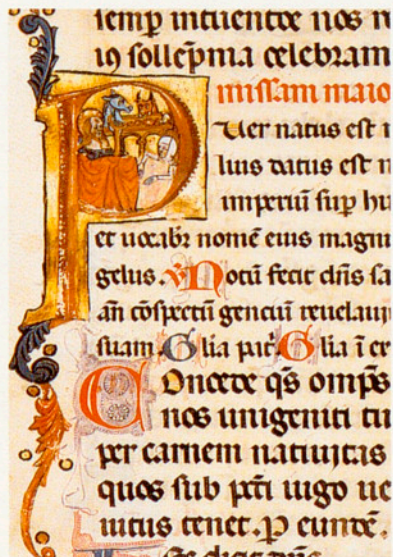 semp intuentēe nos m
in sollēpnia celebram
missam maio
Puer natus est n
lius datus est n
imperiū sup hu
et uocabr nomē eius magni
gelus. V Notū fecit dn̄s sa
an̄ cōspectū genciū reuelauit
suam. Glia pat. Glia ī ex
Concede qs omps
nos unigeniti tu
per carnem natiuitas
quos sub pcti iugo ue
uitus tenet. P eundē.